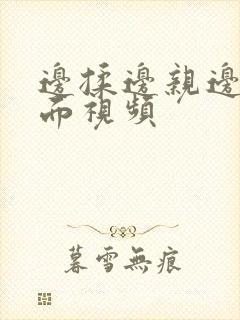 邊揉邊親邊
面視頻
暮雪無痕